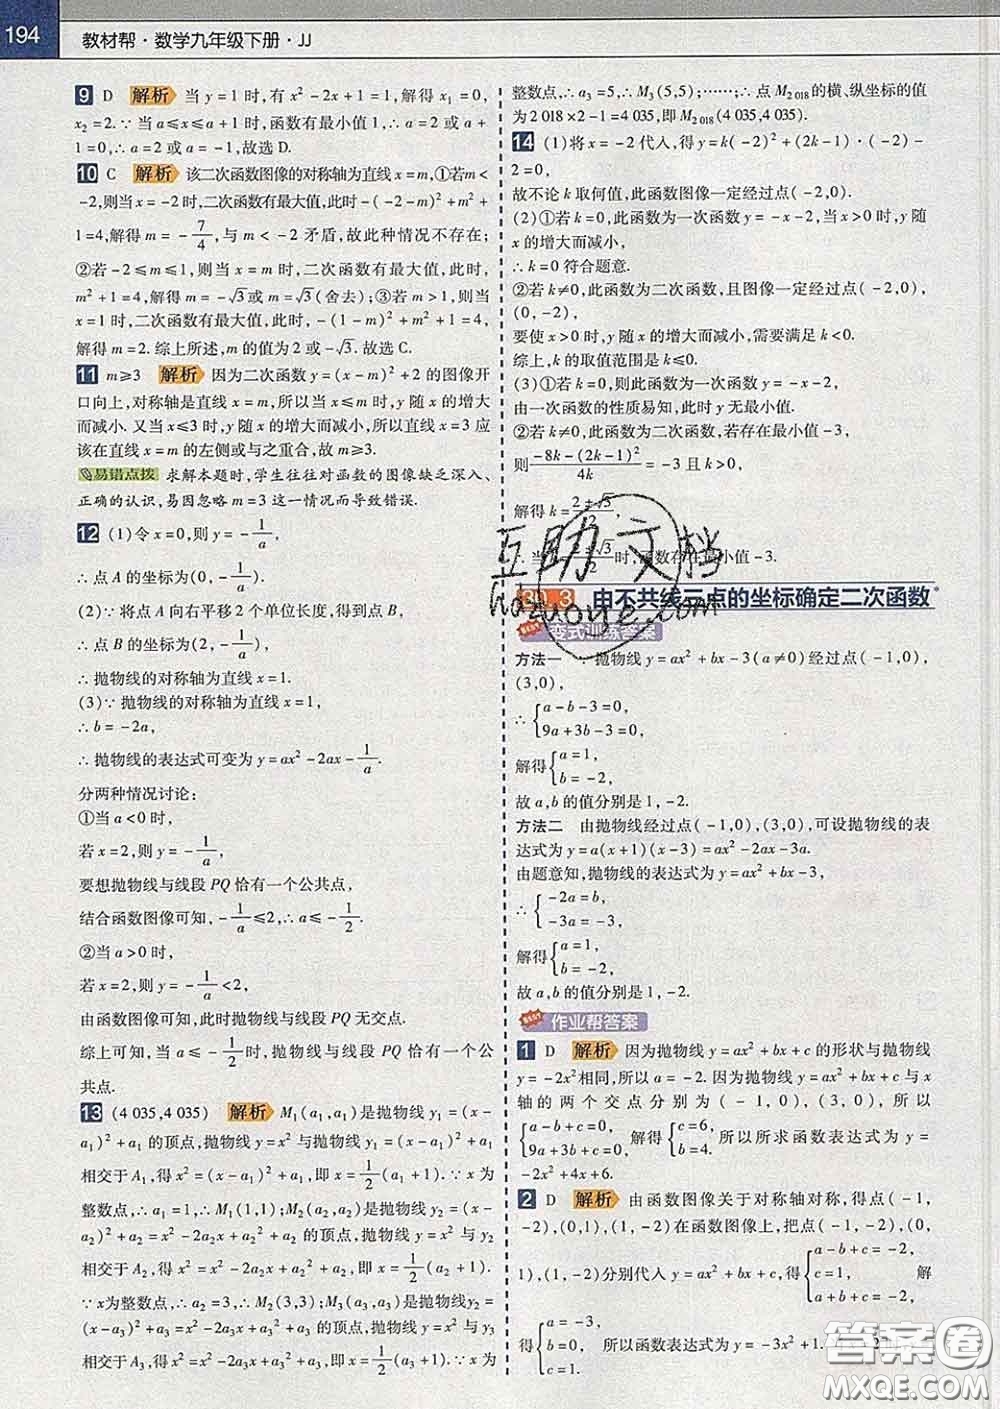 194
教材帮·数学九年级下册·JJ
9 D 解析 当 y=1 时,有 x²-2x+1=1,解得 x₁=0,
x₂=2.∵当 a≤x≤a+1 时,函数有最小值 1,∴a=2 或 a+
1=0,∴a=2 或 a=-1,故选 D.
10 C 解析 该二次函数图像的对称轴为直线 x=m,①若 m<
-2,则当 x=-2 时,二次函数有最大值,此时 -(-2-m)²+m²+
1=4,解得 m=-7/4,与 m<-2 矛盾,故此种情况不存在;
②若 -2≤m≤1,则当 x=m 时,二次函数有最大值,此时,
m²+1=4,解得 m=-√3 或 m=√3(舍去);③若 m>1,则当
x=1 时,二次函数有最大值,此时,-(1-m)²+m²+1=4,
解得 m=2.综上所述,m 的值为 2 或 -√3.故选 C.
11 m≥3 解析 因为二次函数 y=(x-m)²+2 的图像开
口向上,对称轴是直线 x=m,所以当 x≤m 时,y 随 x 的增大
而减小.又当 x≤3 时,y 随 x 的增大而减小,所以直线 x=3 应
该在直线 x=m 的左侧或与之重合,故 m≥3.
易错点拨 求解本题时,学生往往对函数的图像缺乏深入、
正确的认识,易因忽略 m=3 这一情况而导致错误.
12 (1)令 x=0,则 y=-1/a,
∴点 A 的坐标为(0,-1/a).
(2)∵将点 A 向右平移 2 个单位长度,得到点 B,
∴点 B 的坐标为(2,-1/a),
∴抛物线的对称轴为直线 x=1.
(3)∵抛物线的对称轴为直线 x=1,
∴b=-2a,
∴抛物线的表达式可变为 y=ax²-2ax-1/a.
分两种情况讨论:
①当 a<0 时,
若 x=2,则 y=-1/a,
要想抛物线与线段 PQ 恰有一个公共点,
结合函数图像可知,-1/a≤2,∴a≤-1/2.
②当 a>0 时,
若 x=2,则 y=-1/a<2,
由函数图像可知,此时抛物线与线段 PQ 无交点.
综上可知,当 a≤-1/2时,抛物线与线段 PQ 恰有一个公
共点.
13 (4 035,4 035) 解析 M₁(a₁,a₁)是抛物线 y₁=(x-
a₁)²+a₁ 的顶点,抛物线 y=x² 与抛物线 y₁=(x-a₁)²+a₁
相交于 A₁,得 x²=(x-a₁)²+a₁,即 x=1/2(a₁+1).∵x 为
整数点,∴a₁=1,∴M₁(1,1);M₂(a₂,a₂)是抛物线 y₂=(x-
a₂)²+a₂=x²-2a₂x+a₂²+a₂ 的顶点,抛物线 y=x² 与 y₂
相交于 A₂,得 x²=x²-2a₂x+a₂²+a₂,即 x=1/2(a₂+1).
∵x为整数点,∴a₂=3,∴M₂(3,3);M₃(a₃,a₃)是抛物线y₃=
(x-a₃)²+a₃=x²-2a₃x+a₃²+a₃ 的顶点,抛物线 y=x² 与 y₃
相交于 A₃,得 x²=x²-2a₃x+a₃²+a₃,即 x=1/2(a₃+1).∵x 为
整数点,∴a₃=5,∴M₃(5,5);……;∴点 M₂₀₁₈的横、纵坐标的值
为 2 018×2-1=4 035,即 M₂₀₁₈(4 035,4 035).
14 (1)将 x=-2 代入,得 y=k(-2)²+(2k-1)·(-2)-
2=0,
故不论 k 取何值,此函数图像一定经过点(-2,0).
(2)①若 k=0,此函数为一次函数 y=-x-2,当 x>0 时,y 随
x 的增大而减小,
∴k=0 符合题意.
②若 k≠0,此函数为二次函数,且图像一定经过点(-2,0),
(0,-2),
要使 x>0 时,y 随 x 的增大而减小,需要满足 k<0.
综上,k 的取值范围是 k≤0.
(3)①若 k=0,则此函数为一次函数 y=-x-2,
由一次函数的性质易知,此时 y 无最小值.
②若 k≠0,此函数为二次函数,若此函数存在最小值 -3,
则 (-8k-(2k-1)²)/4k=-3 且 k>0,
解得 k=(2±√3)/2,
∴当 k=(2±√3)/2时,函数存在最小值 -3.
30.3 由不共线三点的坐标确定二次函数*
变式训练答案
方法一 ∵抛物线 y=ax²+bx-3(a≠0)经过点(-1,0),
(3,0),
∴{a-b-3=0,
9a+3b-3=0,
解得{a=1,
b=-2,
故 a,b 的值分别是 1,-2.
方法二 由抛物线经过点(-1,0),(3,0),可设抛物线的表
达式为 y=a(x+1)(x-3)=ax²-2ax-3a.
由题意知,抛物线的表达式为 y=ax²+bx-3,
∴{-2a=b,
-3a=-3,
解得{a=1,
b=-2,
故 a,b 的值分别是 1,-2.
作业帮答案
1 D 解析 因为抛物线 y=ax²+bx+c 的形状与抛物线
y=-2x²相同,所以 a=-2.因为抛物线 y=ax²+bx+c 与 x
轴的两个交点分别为(-1,0),(3,0),所以
{a-b+c=0,
9a+3b+c=0,
解得{c=6,
b=4.
所以所求函数表达式为 y=
-2x²+4x+6.
2 D 解析 由函数图像关于对称轴对称,得点(-1,
-2),(0,1),(1,-2)在函数图像上,把点(-1,-2),(0,
1),(1,-2)分别代入 y=ax²+bx+c,得{a-b+c=-2,
c=1,
a+b+c=-2,
解
得{a=-3,
b=0,
c=1.
所以函数表达式为 y=-3x²+1.
互助文档
hdzuoye.com
答案圈
MXQE.COM